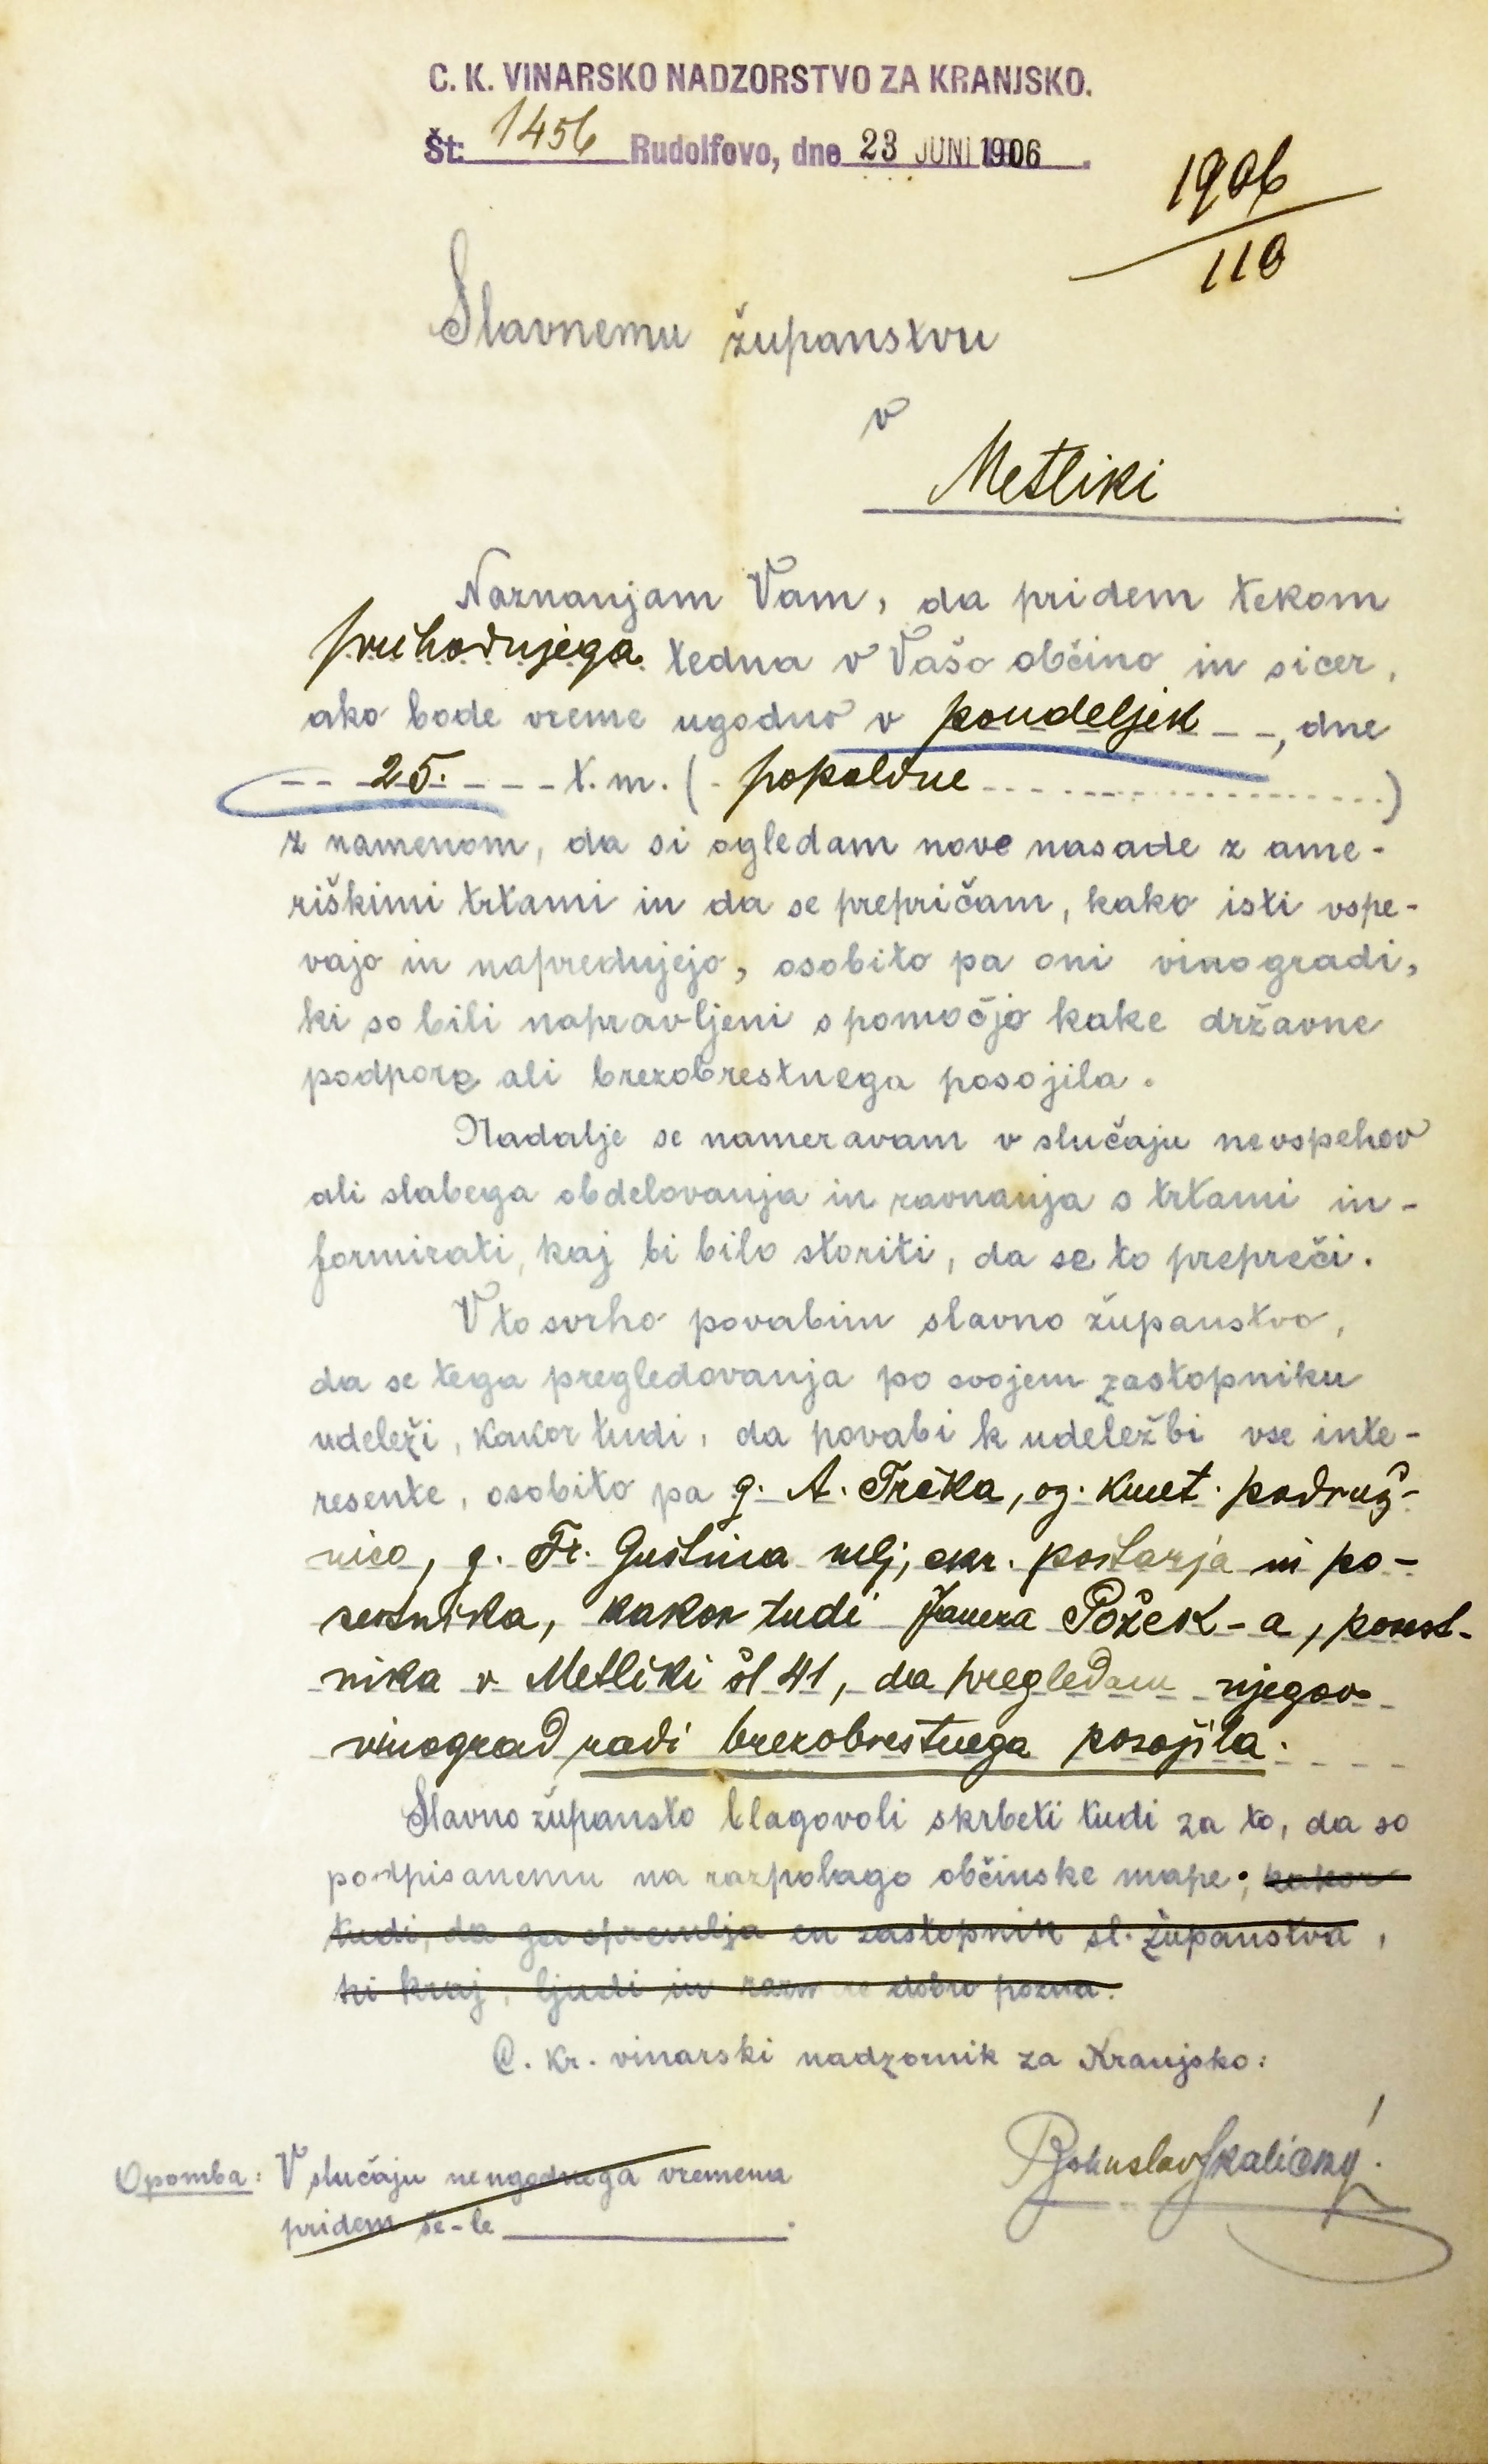 C. K. VINARSKO NADZORSTVO ZA KRANJSKO.
Št: 1456 Rudolfovo, dne 23 JUNI 1906.
1906
110
Slavnemu županstvu
v
Metliki
Naznanjam Vam, da pridem tekom
prihodnjega tedna v Vašo občino in sicer,
ako bode vreme ugodno v pondeljek, dne
25. t. m. (popoldne)
z namenom, da si ogledam nove nasade z ame-
riškimi trtami in da se prepričam, kako isti vspe-
vajo in napredujejo, osobito pa oni vinogradi,
ki so bili napravljeni s pomočjo kake državne
podpore ali brezobrestnega posojila.
Nadalje se nameravam v slučaju nevspehov
ali slabega obdelovanja in ravnanja s trtami in-
formirati, kaj bi bilo storiti, da se to prepreči.
V to svrho povabim slavno županstvo,
da se tega pregledovanja po svojem zastopniku
udeleži, kakor tudi, da povabi k udeležbi vse inte-
resente, osobito pa g. A. Trčka, og. kmet. podruž-
nico, g. Fr. Guština mlj, okr. poštarja in po-
sestnika, kakor tudi Janeza Požek-a, posest-
nika v Metliki št 41, da pregledam njegov
vinograd radi brezobrestnega posojila.
Slavno župansto blagovoli skrbeti tudi za to, da so
podpisanemu na razpolago občinske mape; kakor
tudi, da ga spremlja en zastopnik sl. županstva,
ki kraj, ljudi in razmere dobro pozna.
C. kr. vinarski nadzornik za Kranjsko:
Bohuslav Skalický.
Opomba: V slučaju neugodnega vremena
pridem še-le